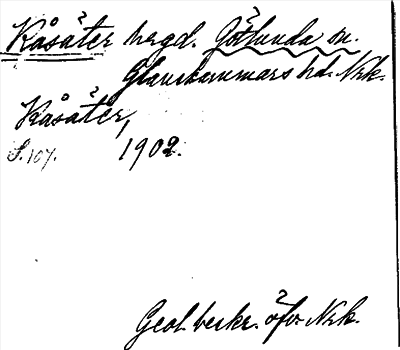 Kåsåter hrgd. Götlunda sn.
Glanshammars hd. Nrk.
Kåsåter,
S. 107. 1902.
Geol. beskr. öfv. Nrk.